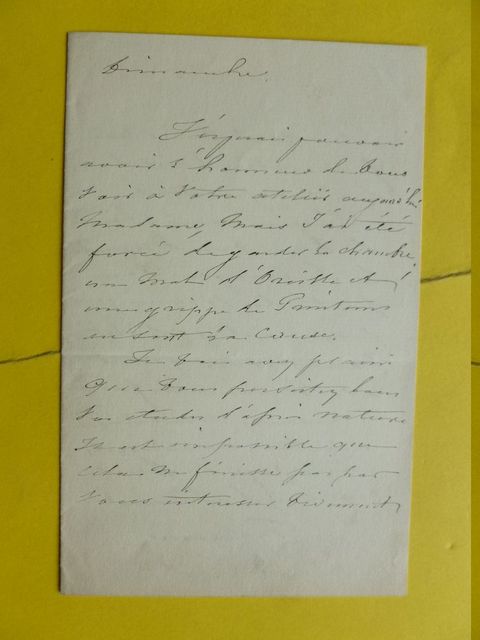 Dimanche.
J'espérais pouvoir
avoir l'honneur de vous
voir à votre atelier aujourd'hui
Madame, Mais J'ai été
forcé de garder la chambre,
un Mal d'Oreille et
une grippe de Printems
en sont la cause.
Je vois avec plaisir
que vous persistez dans
vos études d'après nature
Il est impossible que
cela ne finisse pas par
vous intéresser vivement